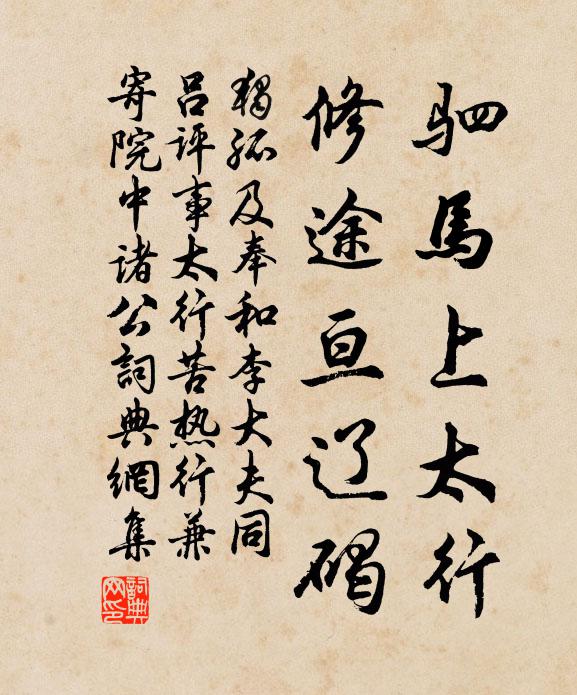 驷馬上太行
修途亘辽碣
獨孤及奉和李大夫同
吕評事太行苦热行兼
寄院中諸公詞典網集
詞典
网印